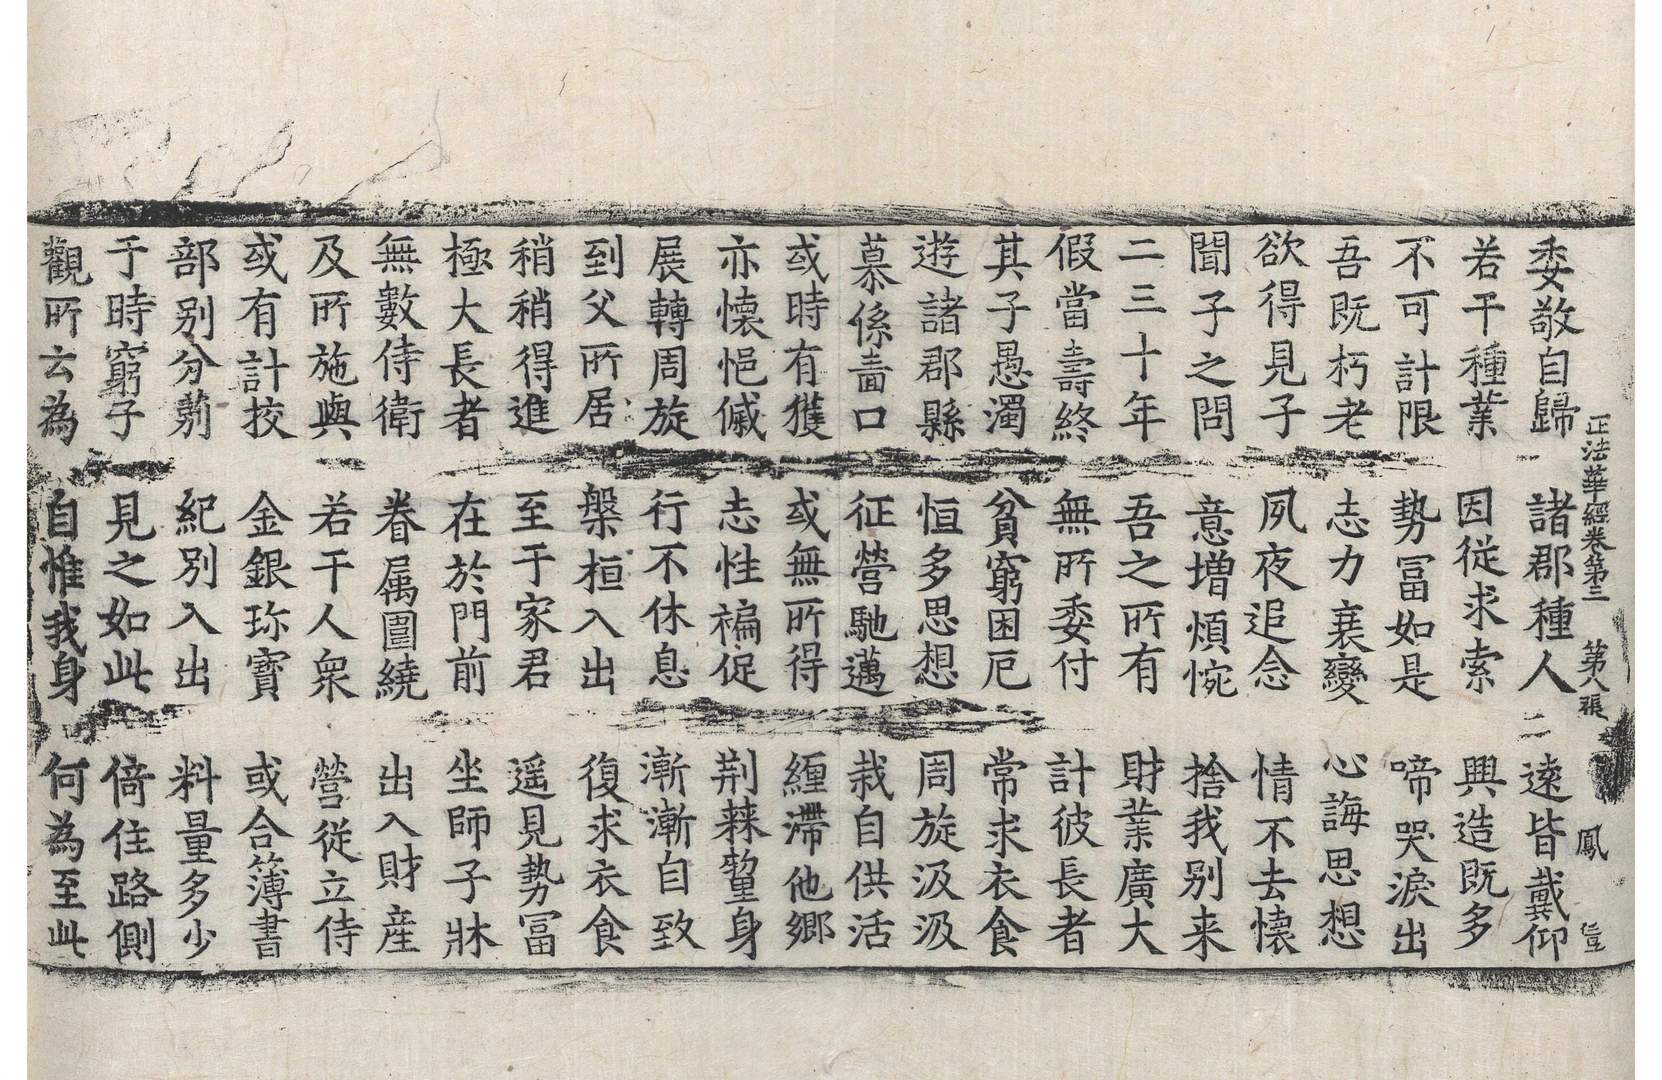 正法華經卷第三 第八張 鳳
委敬自歸 諸郡種人 遠皆戴仰
若干種業 因從求索 興造既多
不可計限 勢冨如是 啼哭淚出
吾既朽老 志力衰變 心誨思想
欲得見子 夙夜追念 情不去懷
聞子之問 意增煩惋 捨我別来
二三十年 吾之所有 財業廣大
假當壽終 無所委付 計彼長者
其子愚濁 貧窮困厄 常求衣食
遊諸郡縣 恒多思想 周旋汲汲
慕係嗇口 征營馳邁 栽自供活
或時有獲 或無所得 纏滯他鄉
亦懷悒慽 志性褊促 荆棘身
展轉周旋 行不休息 漸漸自致
到父所居 槃桓入出 復求衣食
稍稍得進 至于家君 遥見勢冨
極大長者 在於門前 坐師子牀
無數侍衛 眷属圍繞 出入財産
及所施與 若干人衆 營從立侍
或有計挍 金銀珎寶 或合簿書
部別分莂 紀別入出 料量多少
于時窮子 見之如此 倚住路側
觀所云為 自惟我身 何為至此